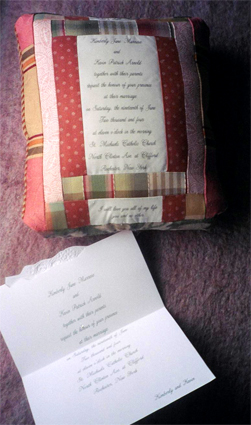 Kimberly Jane
and
Kevin Patrick Arnold
together with their parents
request the honour of your presence
at their marriage
on Saturday, the nineteenth of June
Two thousand and four
at eleven o'clock in the morning
St. Michael's Catholic Church
North Clinton Ave at Clifford
Rochester, New York
I will love you all of my life
Kimberly Jane
and
Kevin Patrick Arnold
together with their parents
request the honour of your presence
at their marriage
on Saturday, the nineteenth of June
Two thousand and four
at eleven o'clock in the morning
St. Michael's Catholic Church
North Clinton Ave at Clifford
Rochester, New York
Kimberly and Kevin